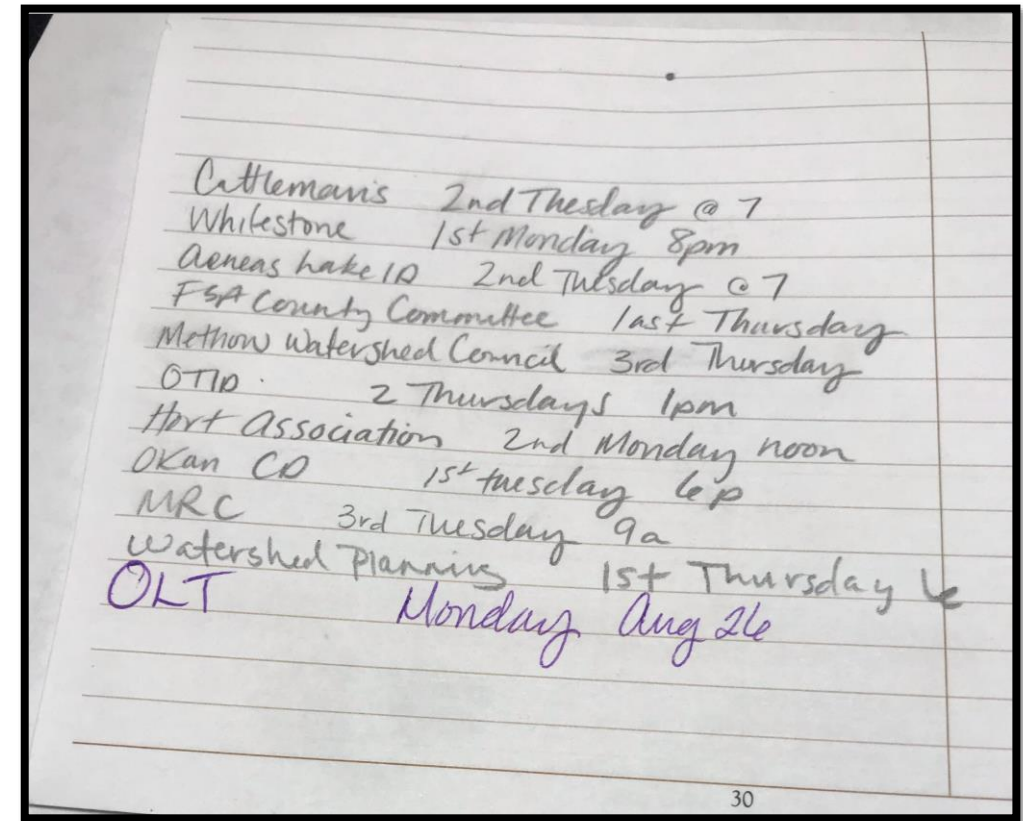 Cattleman's 2nd Tuesday @ 7
Whitestone 1st Monday 8pm
Aeneas Lake ID 2nd Tuesday @ 7
FSA County Committee last Thursday
Methow Watershed Council 3rd Thursday
OTID 2 Thursdays 1pm
Hort Association 2nd Monday noon
OKan CD 1st tuesday 6p
MRC 3rd Tuesday 9a
Watershed Planning 1st Thursday 6
OLT Monday Aug 26
30